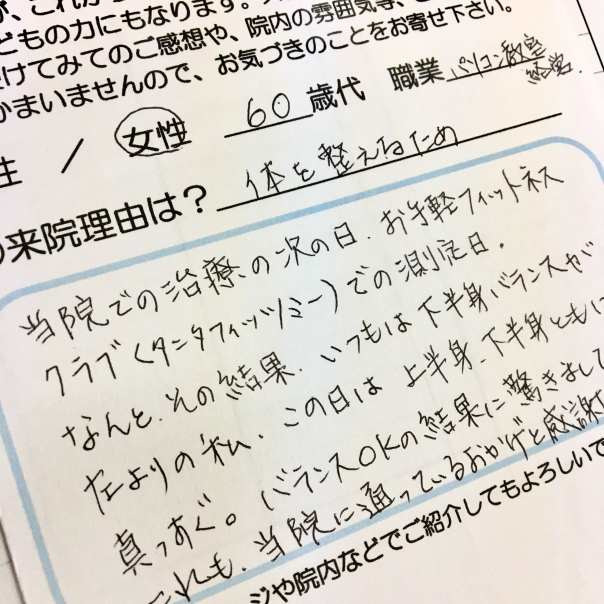 が、これか
どもの力にもなります。
受けてみてのご感想や、院内の雰囲気等、
かまいませんので、お気づきのことをお寄せ下さい。
性 / 女性 60 歳代 職業 パソコン教室
経営
の来院理由は? 体を整えるため
当院での治療の次の日、お手軽フィットネス
クラブ(タニタフィッツミー)での測定日。
なんと、その結果、いつもは下半身バランスが
左よりの私、この日は上半身、下半身ともに
真っすぐ。バランスOKの結果に驚きまし
これも、当院に通っているおかげと感謝
ジや院内などでご紹介してもよろしいで